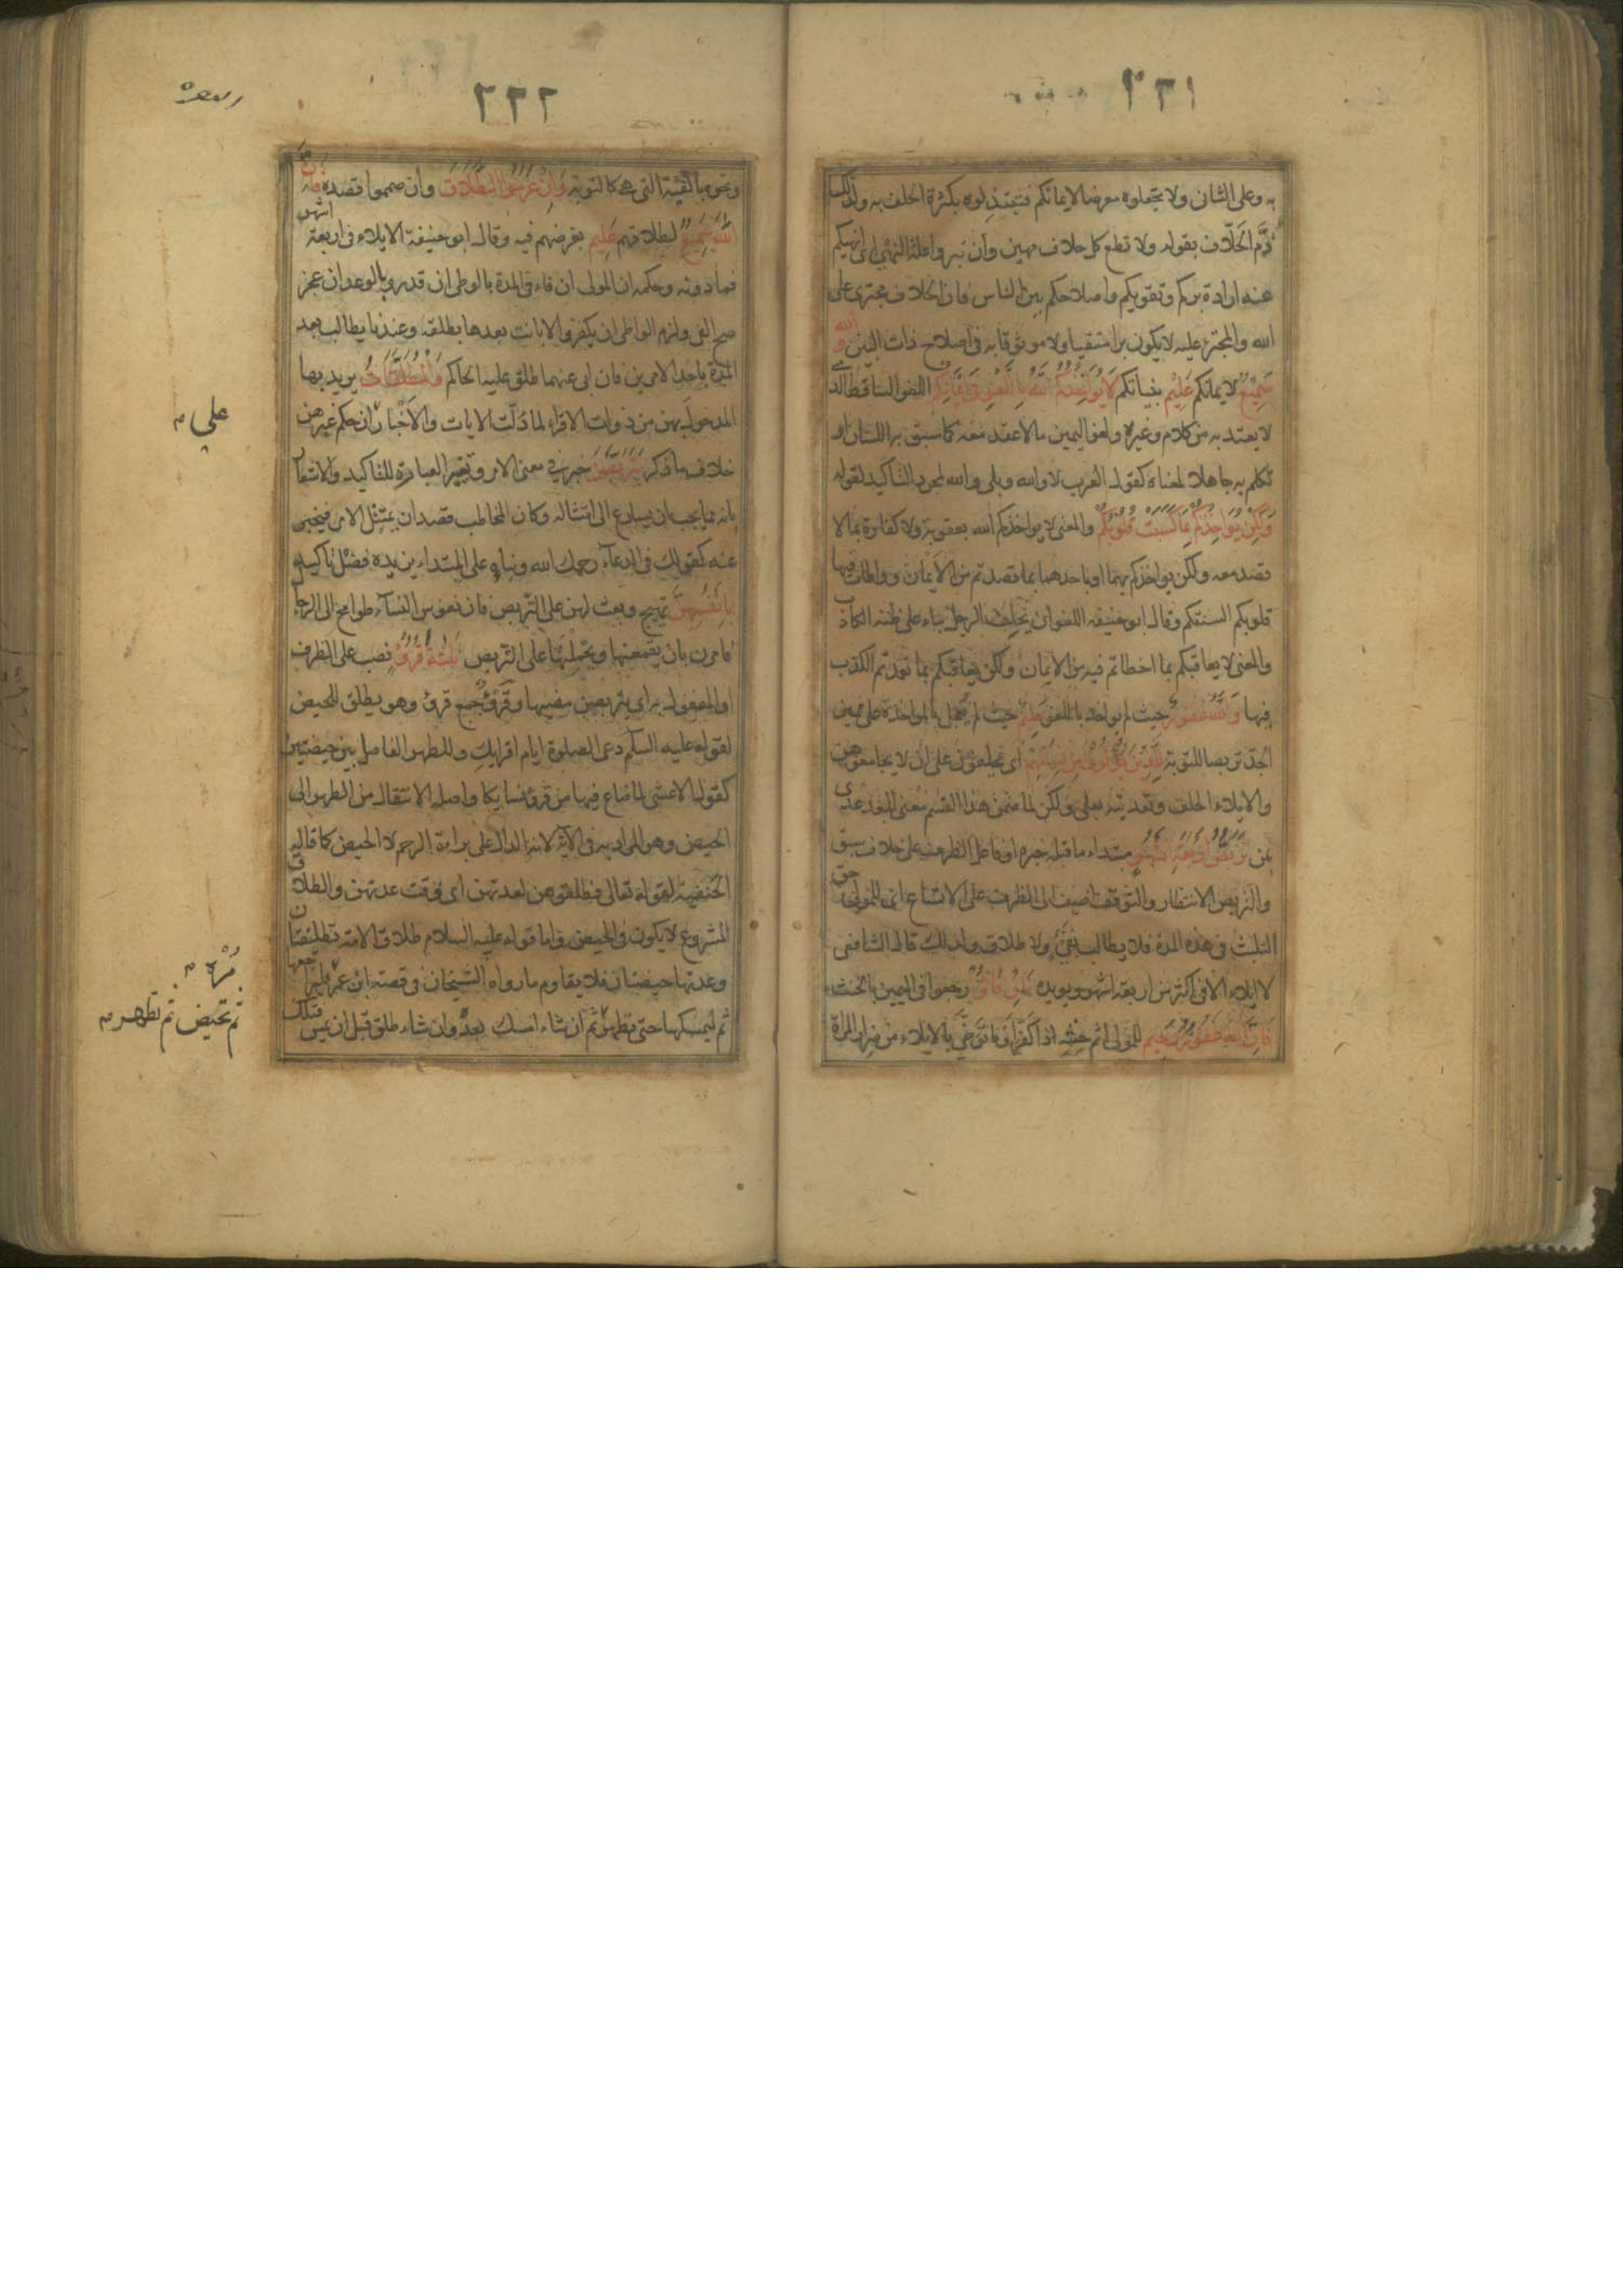 ٢٢١
به وعلى الثانى ولا تجعلوه معرضا لايمانكم فتبتذلوه بكثرة الحلف به ولذلك
ذم الحلاف بقوله ولا تطع كل حلاف مهين وان تبروا علة النهى اى انهيكم
عنه ارادة بركم وتقويكم واصلاحكم بين الناس فان الحلاف مجترى على
الله والمجترئ عليه لا يكون برا متقيا ولا موثوقا به فى اصلاح ذات البين والله
سميع لايمانكم عليم بنياتكم لا يؤاخذكم الله باللغو فى ايمانكم اللغو الساقط الذى
لا يعتد به من كلام وغيره ولغو اليمين ما لا عقد معه كما سبق به اللسان او
تكلم به جاهلا لمعناه كقول العرب لا والله وبلى والله لمجرد التاكيد لقوله
ولكن يؤاخذكم بما كسبت قلوبكم والمعنى لا يواخذكم الله بعقوبة ولا كفارة بما لا
قصد معه ولكن يواخذكم بهما او باحدهما بما قصدتم من الايمان وواطات فيها
قلوبكم السنتكم وقال ابو حنيفه اللغو ان يحلف الرجل بناء على ظنه الكاذب
والمعنى لا يعاقبكم بما اخطاتم فيه من الايمان ولكن يعاقبكم بما تعمدتم الكذب
فيها والله غفور حيث لم يواخذ باللغو حليم حيث لم يعجل بالمواخذة على يمين
الجد تربصا للتوبة للذين يؤلون من نسائهم اى يحلفون على ان لا يجامعوهن
والايلاء الحلف وتعديته بعلى ولكن لما ضمن هذا القسم معنى البعد عدى
بمن تربص اربعة اشهر مبتداء ما قبله خبره او فاعل الظرف على خلاف سبق
والتربص الانتظار والتوقف اضيف الى الظرف على الاتساع اى للمولى حق
التلبث فى هذه المدة فلا يطالب بفئ ولا طلاق ولذلك قال الشافعى
لا ايلاء الا فى اكثر من اربعة اشهر ويويده فان فاؤا رجعوا فى اليمين بالحنث
فان الله غفور رحيم للمولى اثم حنثه اذا كفر او ما توخى بالايلاء من ضرار المراة
٢٢٢
ونحوه بالفيئة التى هى كالتوبة وان عزموا الطلاق وان صمموا قصده فان
الله سميع لطلاقهم عليم بغرضهم فيه وقال ابو حنيفة الايلاء فى اربعة اشهر
فما دونه وحكمه ان المولى ان فاء فى المدة بالوطى ان قدر وبالوعد ان عجز
صح الفى ولزم الواطى ان يكفر والا بانت بعدها بطلقه وعندنا يطالب بعد
المدة باحد الامرين فان ابى عنهما طلق عليه الحاكم والمطلقات يريد بها
المدخول بهن من ذوات الاقراء لما دلت الايات والاخبار ان حكم غيرهن
خلاف ما ذكر يتربصن خبر فى معنى الامر وتغيير العبارة للتاكيد والاشعار
بانه مما يجب ان يسارع الى امتثاله وكان المخاطب قصد ان يمتثل الامر فيخبر
عنه كقولك فى الدعاء رحمك الله وبناوه على المبتداء يزيده فضل تاكيد
بانفسهن تهييج وبعث لهن على التربص فان نفوس النساء طوامح الى الرجال
فامرن بان يقمعنها ويحملنها على التربص ثلثة قروء نصب على الظرف
او المفعول به اى يتربصن مضيها وقروء جمع قرء وهو يطلق للحيض
لقوله عليه السلم دعى الصلوة ايام اقرايك وللطهر الفاصل بين حيضتين
كقول الاعشى لما ضاع فيها من قروء نسايكا واصله الانتقال من الطهر الى
الحيض وهو المراد به فى الاية لانه الدال على براءة الرحم لا الحيض كما قاله
الحنفيه لقوله تعالى فطلقوهن لعدتهن اى فى وقت عدتهن والطلاق
المشروع لا يكون فى الحيض واما قوله عليه السلام طلاق الامة تطليقتان
وعدتها حيضتان فلا يقاوم ما رواه الشيخان فى قصة ابن عمر فليراجعها
ثم ليمسكها حتى تطهر ثم ان شاء امسك بعد وان شاء طلق قبل ان يمس فتلك
على
مره
ثم تحيض ثم تطهر